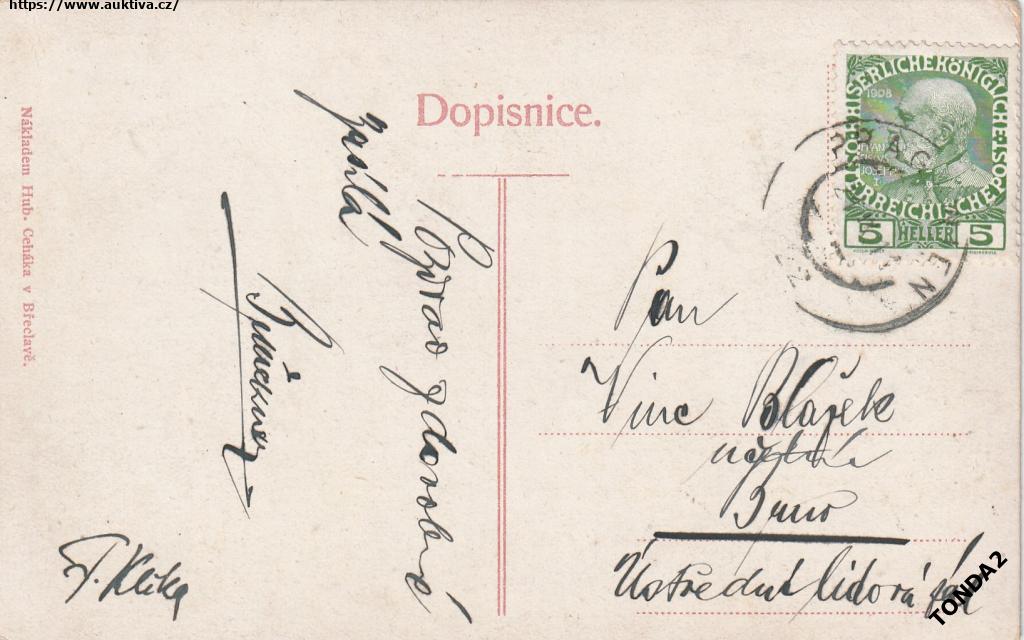 https://www.auktiva.cz/
Dopisnice.
Nákladem Hub. Ceháka v Břeclavě.
KAISERLICHEKÖNIGLICHE
ÖSTERREICHISCHE POST
1908
5 HELLER 5
Pozdrav z dovolené
zasílá
F. Klika
Pan
Vinc Blažek
Brno
Ústřední lidová
TONDA2